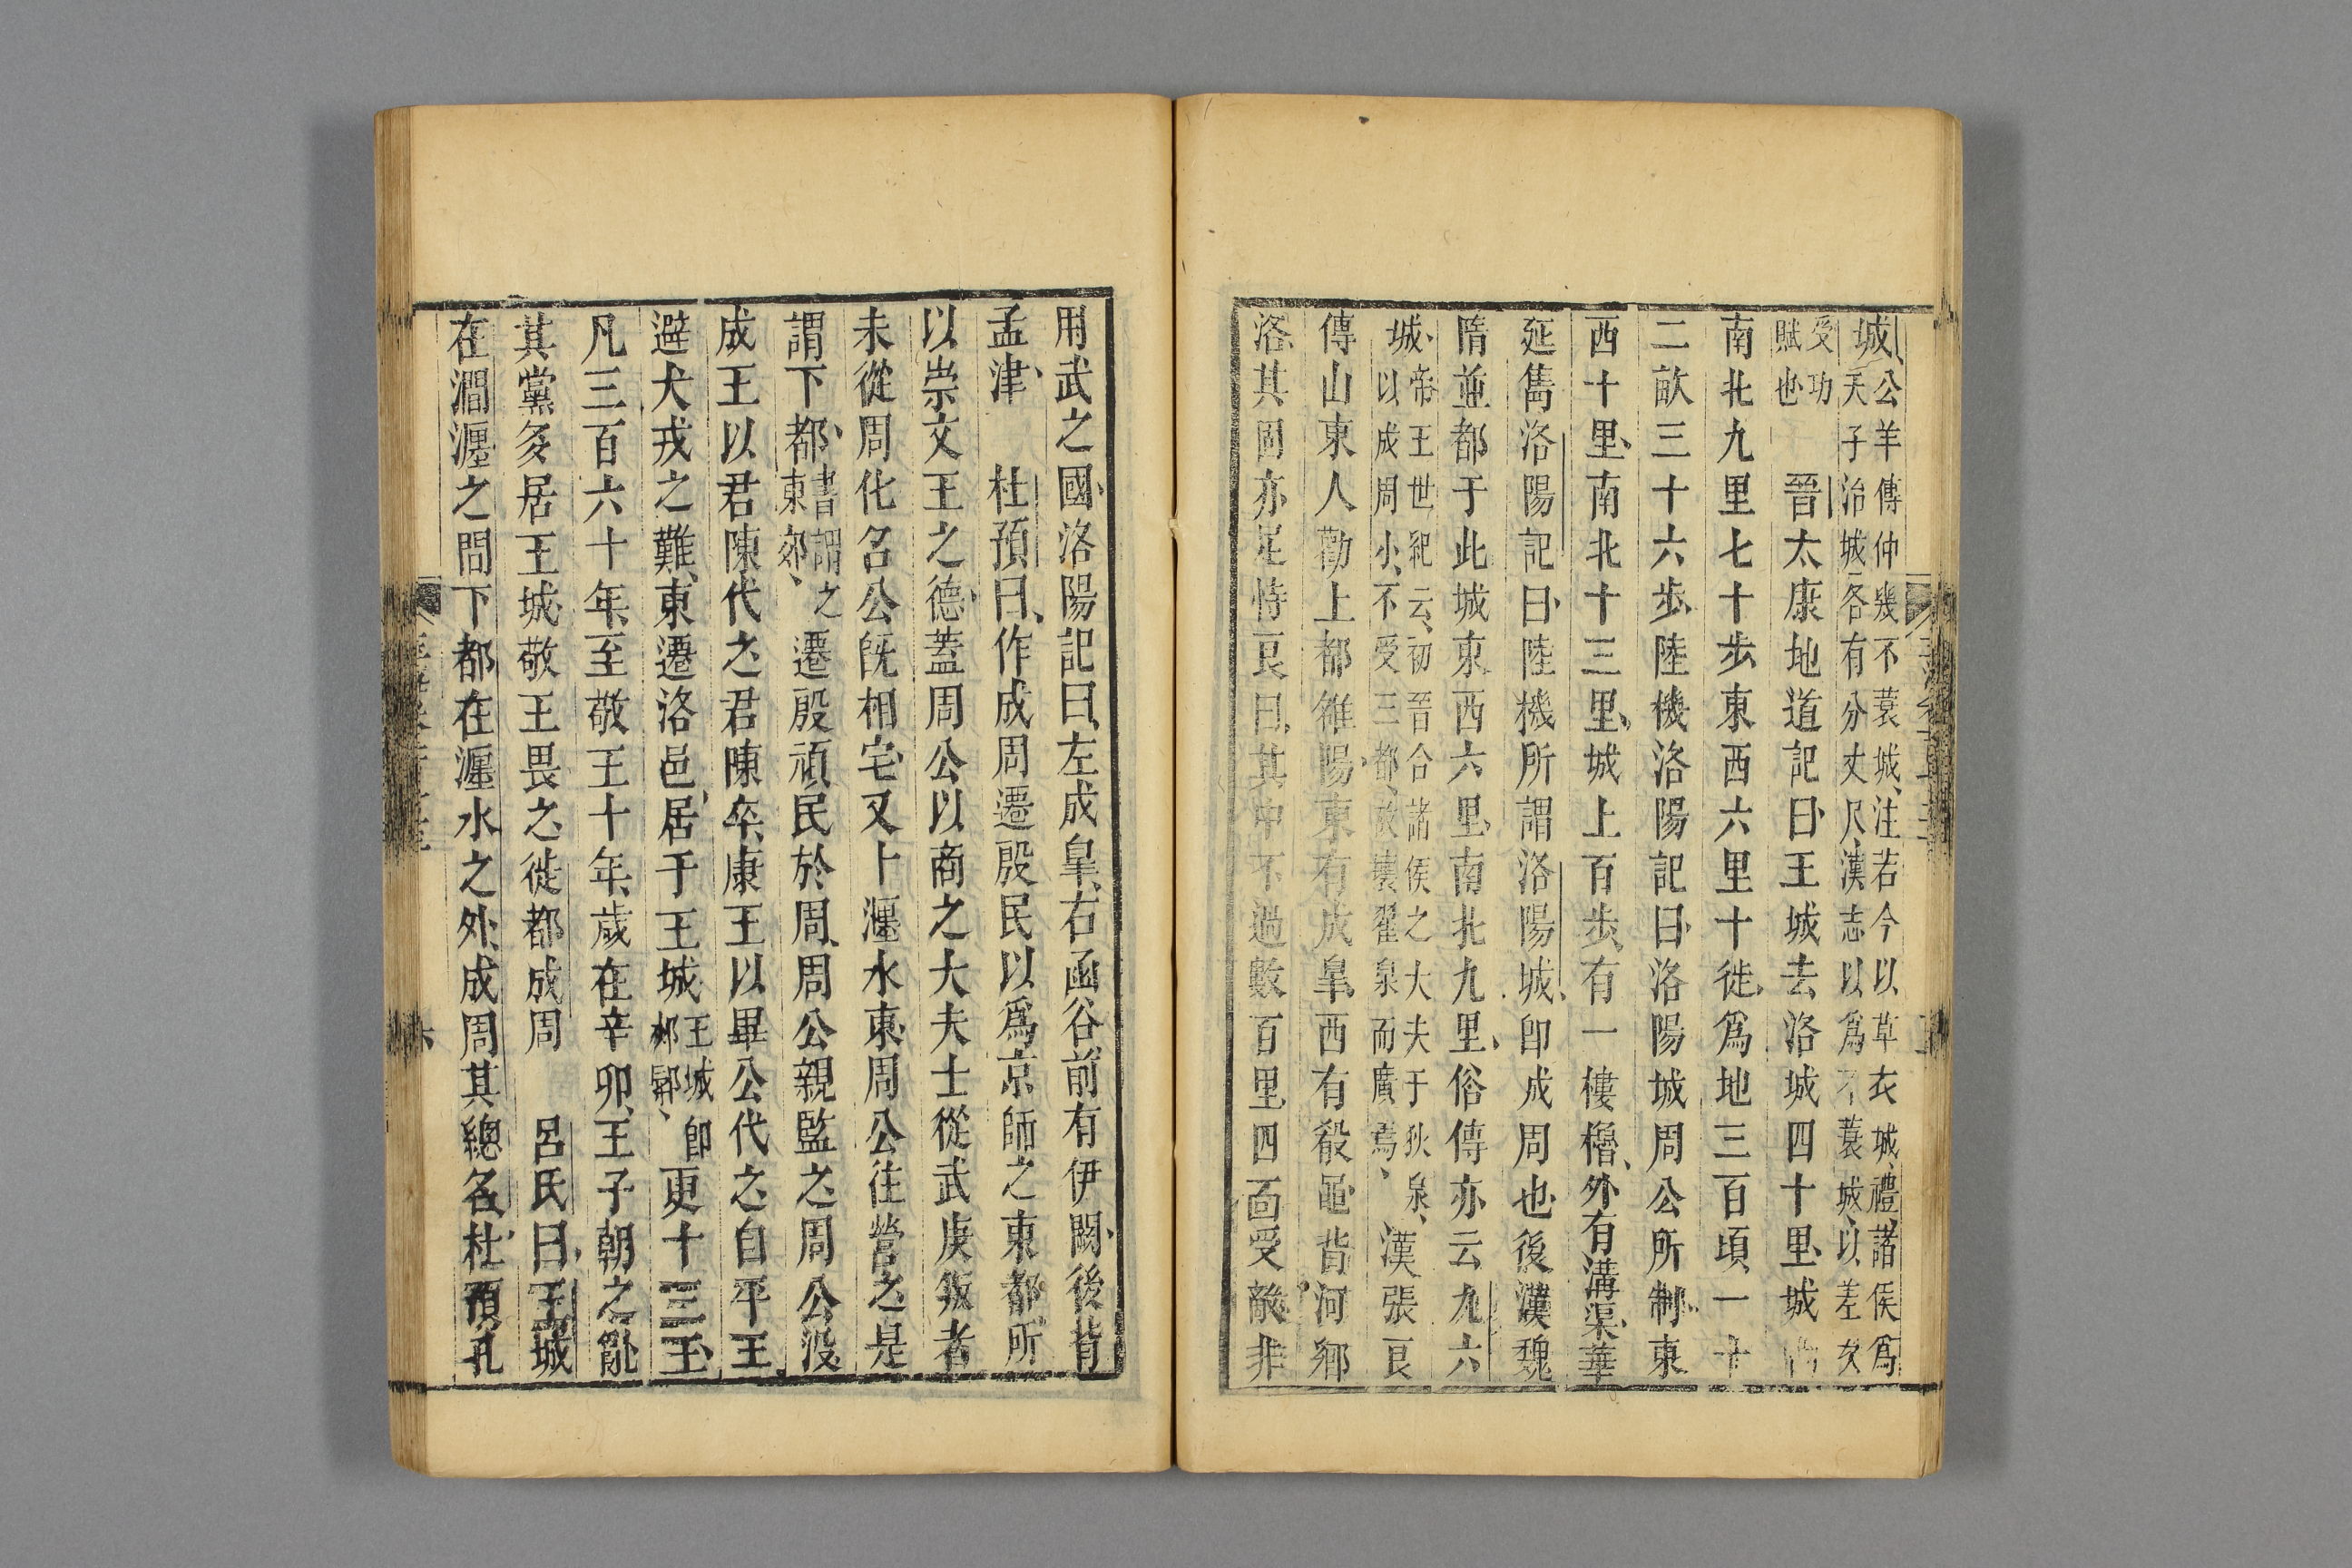 城公羊傳仲幾不蓑城注若今以草衣城禮諸侯爲
天子治城各有分丈尺漢志以爲不蓑城以差次
受功
賦也　晉太康地道記曰王城去洛城四十里城
南北九里七十步東西六里十徙爲地三百頃一十
二畝三十六步陸機洛陽記曰洛陽城周公所制東
西十里南北十三里城上百步有一樓櫓外有溝渠華
延儁洛陽記曰陸機所謂洛陽城卽成周也後漢魏
隋並都于此城東西六里南北九里俗傳亦云九六
城帝王世紀云初晉合諸侯之大夫于狄泉
以成周小不受三都故壞翟泉而廣焉漢張良
傳山東人勸上都雒陽東有成臯西有殽黽背河鄉
洛其固亦足恃良曰其中不過數百里四面受敵非
用武之國洛陽記曰左成臯右函谷前有伊闕後背
孟津　杜預曰作成周遷殷民以爲京師之東都所
以崇文王之德蓋周公以商之大夫士從武庚叛者
未從周化召公旣相宅又卜瀍水東周公往營之是
謂下都書謂之
東郊遷殷頑民於周周公親監之周公沒
成王以君陳代之君陳卒康王以畢公代之自平王
避犬戎之難東遷洛邑居于王城王城卽
郟鄏更十三王
凡三百六十年至敬王十年歲在辛卯王子朝之亂
其黨多居王城敬王畏之徙都成周　呂氏曰王城
在澗瀍之間下都在瀍水之外成周其總名杜預孔
六